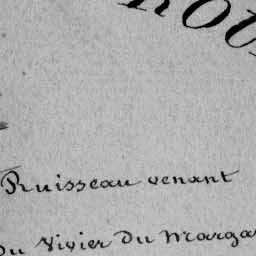 ROU
Ruisseau venant
Du Vivier Du Marga